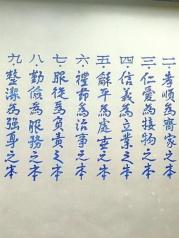 二.孝順為齊家之本
三.仁愛為接物之本
四.信義為立業之本
五.龢平為處世之本
六.禮節為治事之本
七.服從為負責之本
八.勤儉為服務之本
九.整潔為強身之本